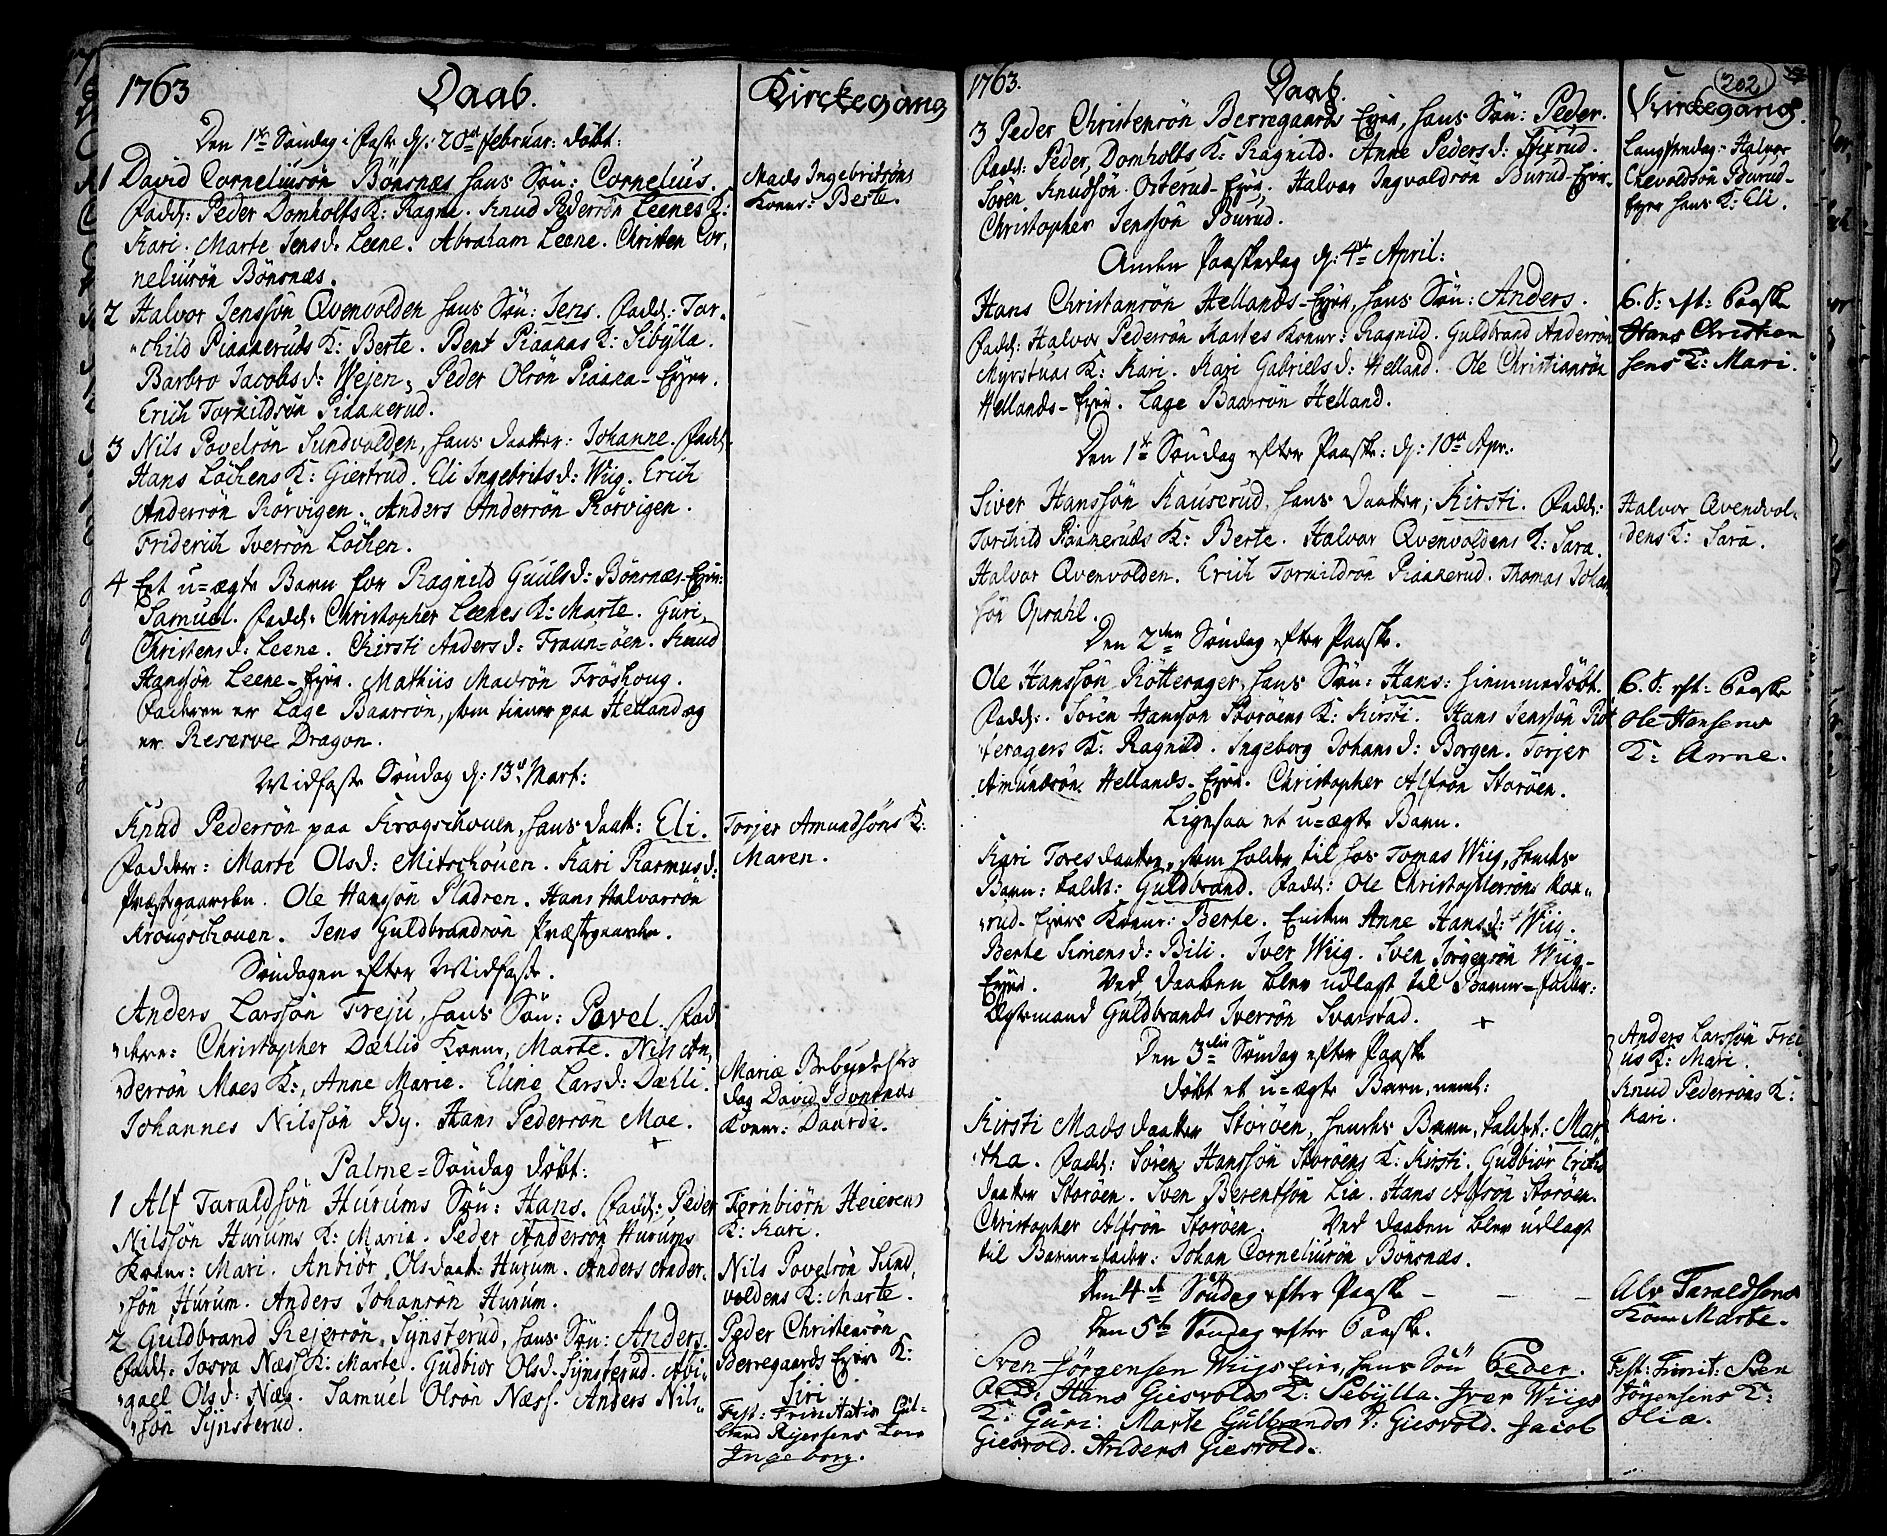 1763 Daab. Kirckegang
Den 1te Søndag i Faste dj: 20de Februar: døbt:
1 David Corneliusøn Bönsnæs hans Søn: Cornelius.
Fadd: Peder Domholts K: Ragne. Knud Pedersøn Leenes K:
Kari. Marte Jensd: Leene. Abraham Leene. Christen Cor-
neliusøn Bönsnæs.
Mads Ingebritsøns
Kone: Berte.
2 Halvor Jenssøn Qvenvolden hans Søn: Jens. Fadd: Tor-
child Piaakeruds K: Berte. Bent Piaakas K: Sibylla.
Barbro Jacobsd: Wejen, Peder Olsøn Piaaka-Ejer.
Erich Torkildsøn Piaakerud.
3 Nils Povelsøn Sundvolden, hans Daatter: Johanne. Fadd:
Hans Löchens K: Giertrud. Eli Ingebritsd: Wiig. Erich
Andersøn Rörvigen. Anders Andersøn Rörvigen.
Friderich Iversøn Löchen.
4 Eet u=ægte Barn for Ragnild Guulsd: Bönsnæs-Ejer:
Samuel. Fadd: Christopher Leenes K: Marte. Guri
Christensd: Leene. Kirsti Andersd: Fraun=öen. Knud
Hansøn Leene-Ejer. Mathis Madsøn Fröshoug.
Faderen er Lage Baarsøn, som tiener paa Helland og
er Reserve Dragon.
Midfaste Søndag dj: 13de Mart:
Knud Pedersøn paa Krogschouen, hans Daatt: Eli.
Faddere: Marte Olsd: Mitschouen. Kari Rasmusd:
Præstgaarden. Ole Hansøn Pladsen. Hans Halvorsøn
Krougschouen. Jens Guldbrandsøn Præstgaarden.
Torjer Amundsøns K:
Maren.
Søndagen efter Midfaste.
Anders Larssøn Freju, hans Søn: Povel. Fad-
dere: Christopher Dæhlis Kone, Marte. Nils An-
dersøn Moes K:, Anne Marie. Eline Larsd: Dæhli.
Johannes Nilssøn By. Hans Pedersøn Moe.
Mariæ Bebudelses
dag David Bönsnæs
Kone: Daardi.
Palme=Søndag døbt:
1 Alf Taraldsøn Hurums Søn: Hans. Fadd: Peder
Nilssøn Hurums K: Maria. Peder Andersøn Hurums
Kone: Mari. Anbiör Olsdaat: Hurum. Anders Ander-
søn Hurum. Anders Johansøn Hurum.
2 Guldbrand Rejersøn Synsterud, hans Søn: Anders.
Fadd: Josva Næss K: Marte. Gudbiör Olsd. Synsterud. Abi-
gael Olsd: Næs. Samuel Olsøn Næss. Anders Nils-
søn Synsterud.
Tornbiørn Heierens
K: Kari.
Nils Povelsøn Sund
voldens K: Marte.
Peder Christensøn
Berregaards Ejer K:
Siri
Fest: Trinitatis Gul-
brand Rejersens Kone
Ingeborg.
1763. Daab. Kirckegang. 202
3 Peder Christensøn Berregaards Ejer, hans Søn: Peder.
Fadd: Peder Domholts K: Ragnild. Anne Pedersd: Sixrud.
Søren Knudsøn Osterud-Ejer. Halvor Ingvoldsøn Burud-Ejer.
Christopher Jenssøn Burud.
Langfredag Halvor
Engvoldsøn Burud-
Ejer hans K: Eli.
Anden Paaskedag dj: 4de April:
Hans Christiansøn Hellands-Ejer, hans Søn: Anders.
Fadd: Halvor Pedersøn Kartes Kone: Ragnild. Guldbrand Andersøn
Myrstuas K: Kari. Kari Gabrielsd: Helland. Ole Christiansøn
Hellands-Ejer. Lage Baarsøn Helland.
6. S: eft: Paaske
Hans Christian
sens K: Mari.
Den 1te Søndag efter Paaske: dj: 10de Apr:
Siver Hanssøn Kauserud, hans Daatter; Kirsti. Fadd:
Torchild Piaakeruds K: Berte. Halvor Qvenvoldens K: Sara.
Halvor Qvenvolden. Erich Torkildsøn Piaakerud. Thomas Johan
søn Opsahl.
Halvor Qvendvol-
dens K: Sara.
Den 2den Søndag efter Paaske.
Ole Hanssøn Rötterager, hans Søn: Hans: hiemmedøbt.
Fadd: Søren Hanssøn Storøens K: Kirsti. Hans Jenssøn Röt
teragers K: Ragnild. Ingeborg Johansd: Borgen. Torjer
Amundsøn Hellands-Ejer. Christopher Alfsøn Storøen.
6. S: eft: Paaske
Ole Hansens
K: Anne.
Ligesaa et u=ægte Barn.
Kari Toresdaatter, som holder til hos Tomas Wiig, hendes
Barn: kaldt: Guldbrand. Fadd: Ole Christophersøns
rud-Ejers Kone: Berte. Enken Anne Hansd: Wiig.
Berte Simensd: Bili. Iver Wiig. Sven Jörgensøn Wiig-
Ejer. Ved Daaben blev udlagt til Barne=fader:
Ægtemand Guldbrand Iversøn Svarstad.
Den 3die Søndag efter Paaske
døbt et u=ægte Barn, neml:
Kirsti Madsdaatter Storøen, hendes Barn, kaldet: Mar-
tha. Fadd: Søren Hanssøn Storøens K: Kirsti. Gudbiör Erics
daatter Storøen. Sven Berentsøn Lia. Hans Alfsøn Storøen.
Christopher Alfsøn Storøen. Ved Daaben blev udlagt
til Barne=fader: Johan Corneliusøn Bonsnæs.
Anders Larssøn Frei-
us K: Mari.
Knud Pedersøns K:
Kari.
Den 4de Søndag efter Paaske - - -
Den 5te Søndag efter Paaske.
Alv Taraldsens
Kone Marte.
Sven Jörgensen Wiigs Eier, hans Søn Peder.
Fadd: Hans Giesvolds K: Sebylla. Iver Wiigs
K: Guri. Marte Gulbrands D: Giesvold. Jacob
Giesvold. Anders Giesvold.
Fest: Trinit: Sven
Jörgensens K:
Olia.